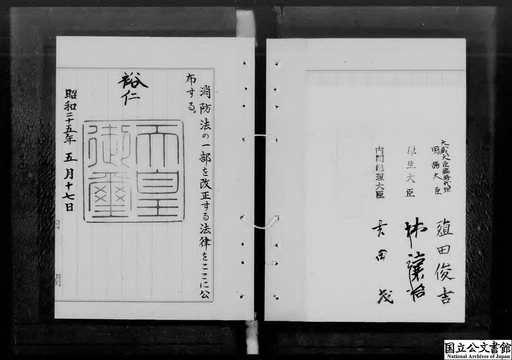 消防法の一部を改正する法律をここに公
布する。
裕仁
天皇
御璽
昭和二十五年五月十七日
内閣総理大臣 吉田茂
厚生大臣 林譲治
大蔵大臣臨時代理
国務大臣 殖田俊吉
国立公文書館
National Archives of Japan